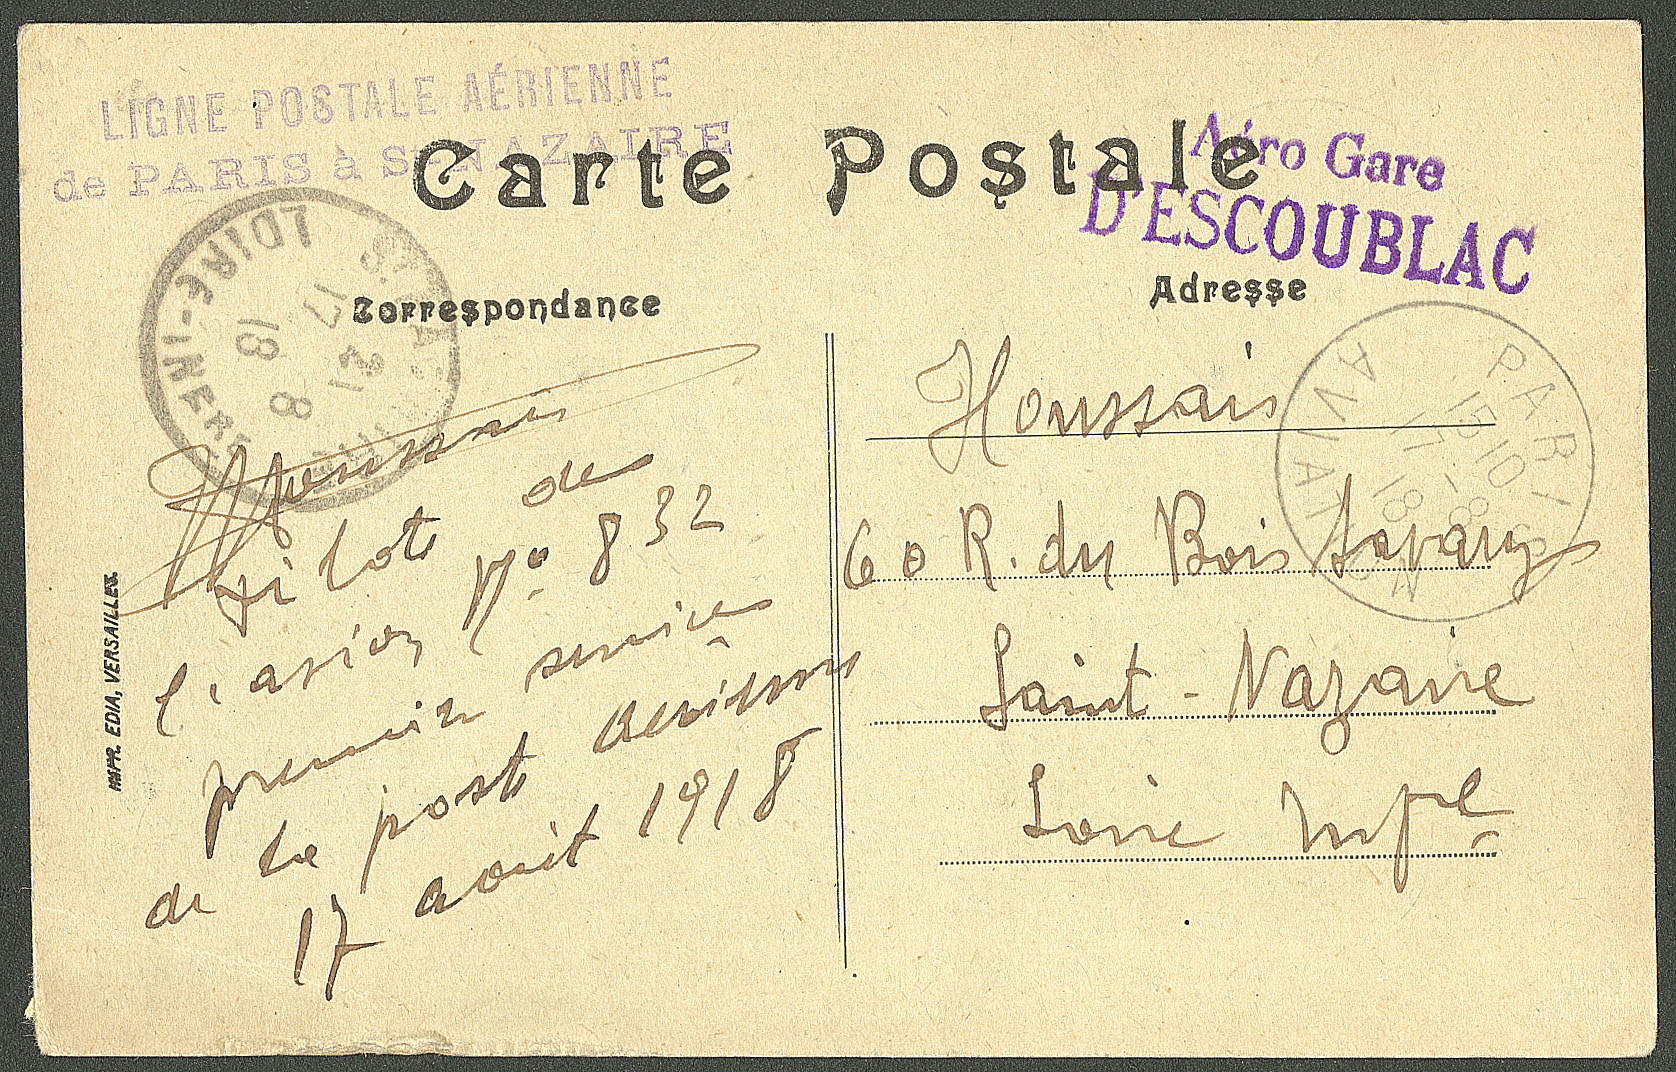 LIGNE POSTALE AÉRIENNE
de PARIS à St NAZAIRE
Carte Postale
Aéro Gare
D'ESCOUBLAC
Correspondance
Adresse
LOIRE-INFRE
17
21
8
18
PARIS
AVIATION
15 10
17 - 8
18
Houssais
pilote de
l'avion No 832
premier service
de la poste aérienne
17 août 1918
Houssais
60 R. du Bois Savary
Saint-Nazaire
Loire Infre
IMPR. EDIA, VERSAILLES.